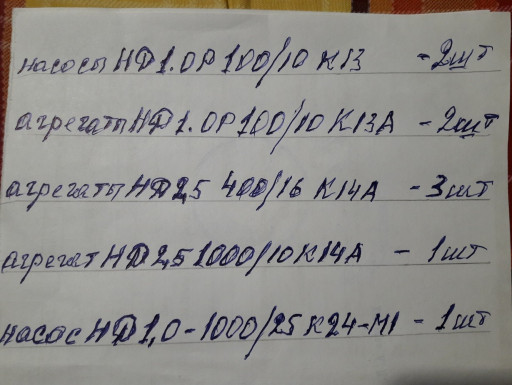 насосы НД 1.0Р 100/10 К13 - 2шт
агрегаты НД 1.0Р 100/10 К13А - 2шт
агрегаты НД 2,5 400/16 К14А - 3шт
агрегат НД 2,5 1000/10 К14А - 1шт
насос НД 1,0-1000/25 К24-М1 - 1шт